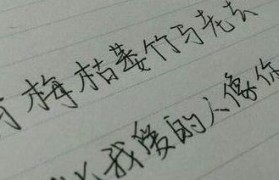 梅枯萎竹马老去
我爱的人像你